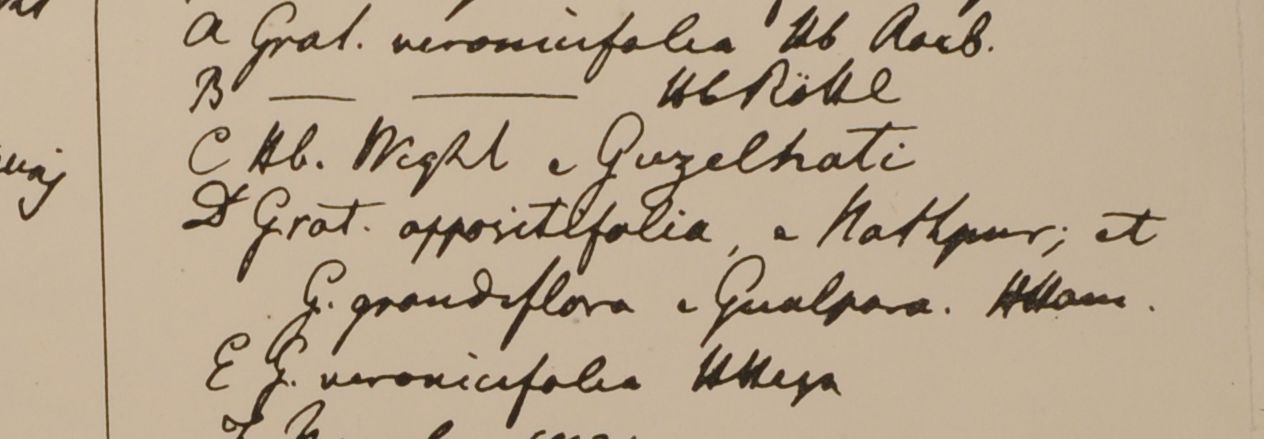 A Grat. veronicifolia Hb Roxb.
B — — Hb Röttl
C Hb. Wight e Guzelhati
D Grat. oppositifolia, e Nathpur; et
G. grandiflora e Gualpara. HHam.
E G. veronicifolia HHeyn